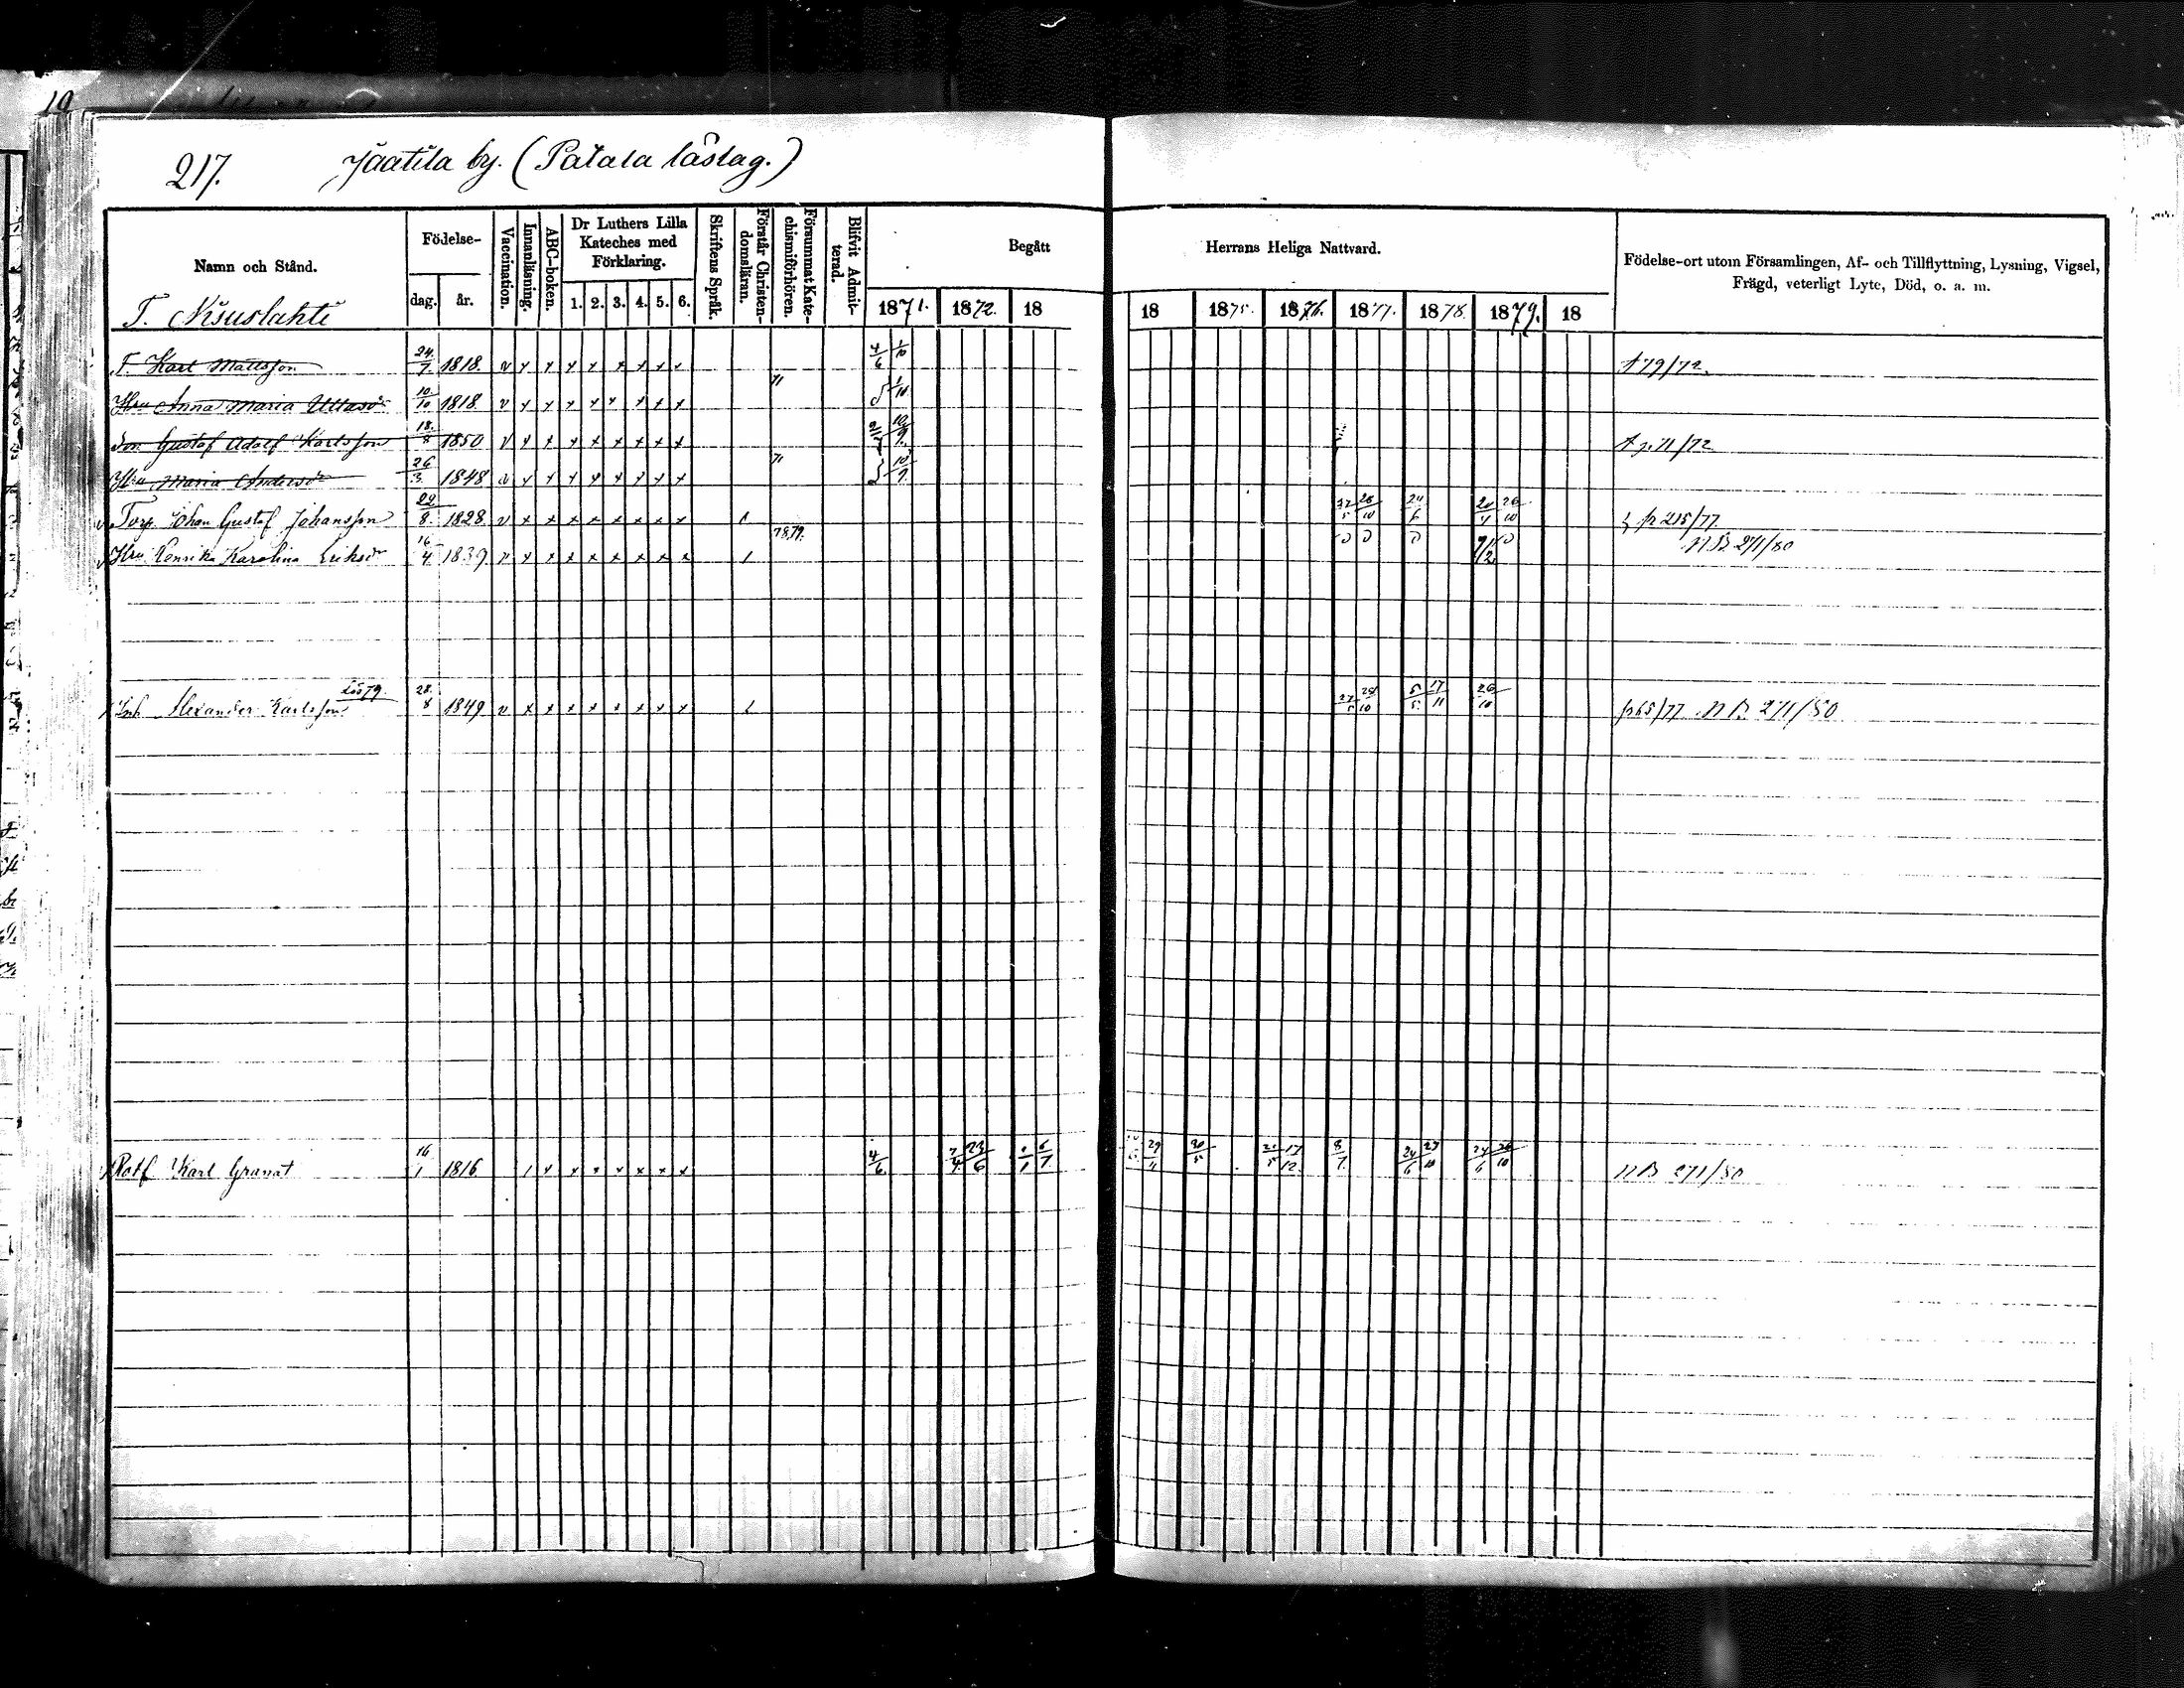 217. Jaatila by. (Patala läslag.)
Namn och Stånd.
Födelse-
dag. år.
Vaccination.
Innanläsning.
ABC-boken.
Dr Luthers Lilla Kateches med Förklaring.
1. 2. 3. 4. 5. 6.
Skriftens Språk.
Förstår Christendomsläran.
Försummat Katechismiförhören.
Blifvit Admitterad.
Begått Herrans Heliga Nattvard.
1871. 1872. 18 18 1875. 1876. 1877. 1878. 1879. 18
Födelse-ort utom Församlingen, Af- och Tillflyttning, Lysning, Vigsel,
Frägd, veterligt Lyte, Död, o. a. m.
T. Nisuslahti
T. Karl Mattsson 24/7 1818. v x x x x x x x x 4/6 1/10 79/72
Hru Anna Maria 10/10 1818 v x x x x x x x x 71 1/10
Son Gustaf Adolf Karlsson 18/8 1850 v x x x x x x x x 10/9 71/72
Hru Maria Andersdr 26/3 1848 v x x x x x x x x 71 10/9
Torp. Johan Gustaf Johansson 29/8 1828 v x x x x x x x x 28/10 24/6 26/10 fr 215/77
Hru Henrika Karolina Eriksdr 16/4 1839 v x x x x x x x x 78,79. N B 271/80
Inh. Alexander Karlsson 28/8 1849 v x x x x x x x x 27/5 28/10 5/5 17/11 26/10 fr 65/77 N B. 271/80
Rotf Karl Granat 16/1 1816 x x x x x x x 4/6 23/6 6/7 29/11 30/5 17/12 8/7 24/6 27/10 24/6 26/10 N B 271/80